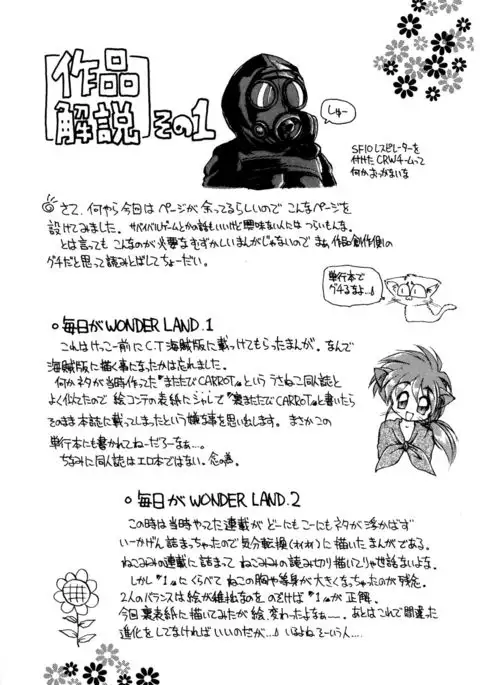 作品
解説 その1
しゅー
SF10レスピレーターを
付けたCRWチームって
何かおっかないな
さて、何やら今回はページが余ってるらしいので こんなページを
設けてみました。サバイバルゲームとかの話もいいけど興味ない人にはつらいもんな。
とは言っても こんなのが必要なむずかしいまんがじゃないので まぁ 作品創作側の
グチだと思って読みとばしてちょーだい。
単行本で
グチるなよ…
毎日がWONDER LAND.1
これはけっこー前にC.T海賊版に載っけてもらったまんが。なんで
海賊版に描く事になったかは忘れました。
何かネタが当時作ってた『またたびCARROT』という うさねこ同人誌と
よく似てたので 絵コンテの表紙にシャレで『裏またたびCARROT』と書いたら
そのまま本誌に載ってしまったという嫌な事を思い出します。まさか この
単行本にも書かれてねーだろーなぁ…。
ちなみに同人誌はエロ本ではない。念の為。
毎日がWONDER LAND.2
この時は当時やってた連載が どーにもこーにもネタが浮かばず
いーかげん詰まっちゃったので気分転換に描いたまんがである。
ねこみみの連載に詰まって ねこみみの読み切り描いてりゃ世話ないよな。
しかし『1』にくらべて ねこの胸や等身が大きくなっちゃたのが残念。
2人のバランスは絵が稚拙なものの『1』が正解。
今回裏表紙に描いてみたが絵、変わったよなぁー。あとはこれで間違った
進化をしてなければいいのだが…。いるよねそーいう人…